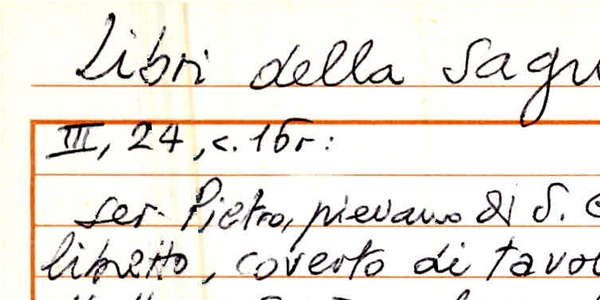 Libri della Sagr
III, 24, c. 15r:
ser Pietro, pievano di S.
libretto, coverto di tavol